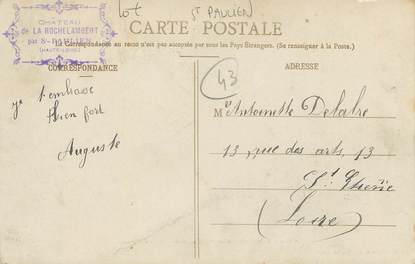 lot
St PAULIEN
CHATEAU
de LA ROCHELAMBERT
par St-PAULIEN
(HAUTE-LOIRE)
CARTE POSTALE
La Correspondance au recto n'est pas acceptée par tous les Pays Étrangers. (Se renseigner à la Poste.)
CORRESPONDANCE
ADRESSE
43
Je t'embrasse
bien fort
Auguste
M Antoinette Delabre
13, rue des arts, 13
St Etienne
(Loire)